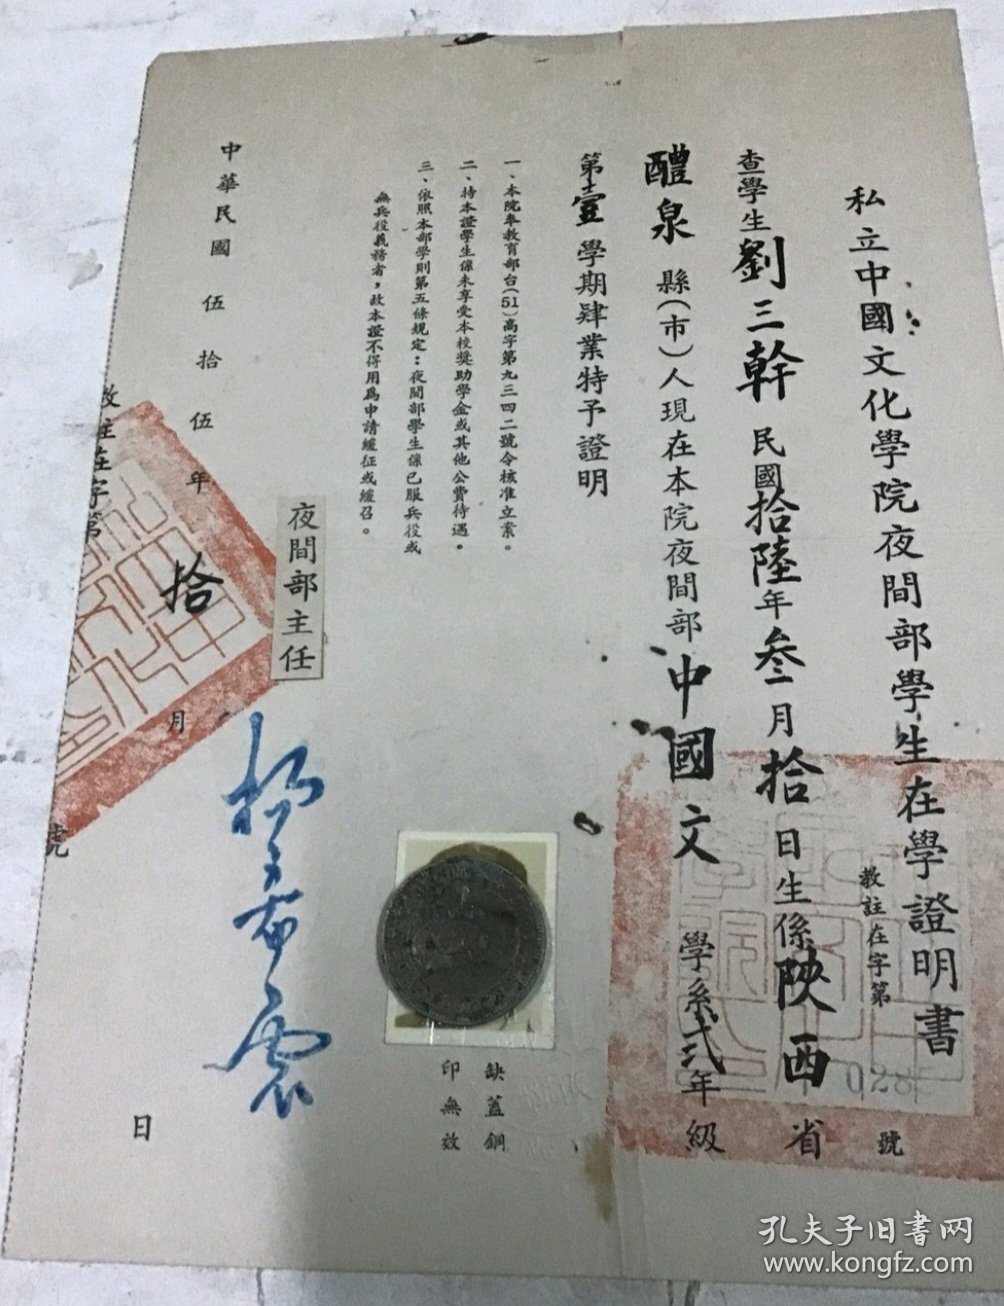 私立中國文化學院夜間部學生在學證明書
教註在字第028號
查學生劉三幹民國拾陸年叁月拾日生係陝西省
醴泉縣(市)人現在本院夜間部中國文學系弍年級
第壹學期肄業特予證明
一、本院奉教育部台(51)高字第九三四二號令核准立案。
二、持本證學生係未享受本校獎助學金或其他公費待遇。
三、依照本部學則第五條規定：夜間部學生係已服兵役或
無兵役義務者，故本證不得用爲申請緩征或緩召。
缺蓋鋼
印無效
夜間部主任
中華民國伍拾伍年拾月日
教註在字第
號
孔夫子旧書网
www.kongfz.com